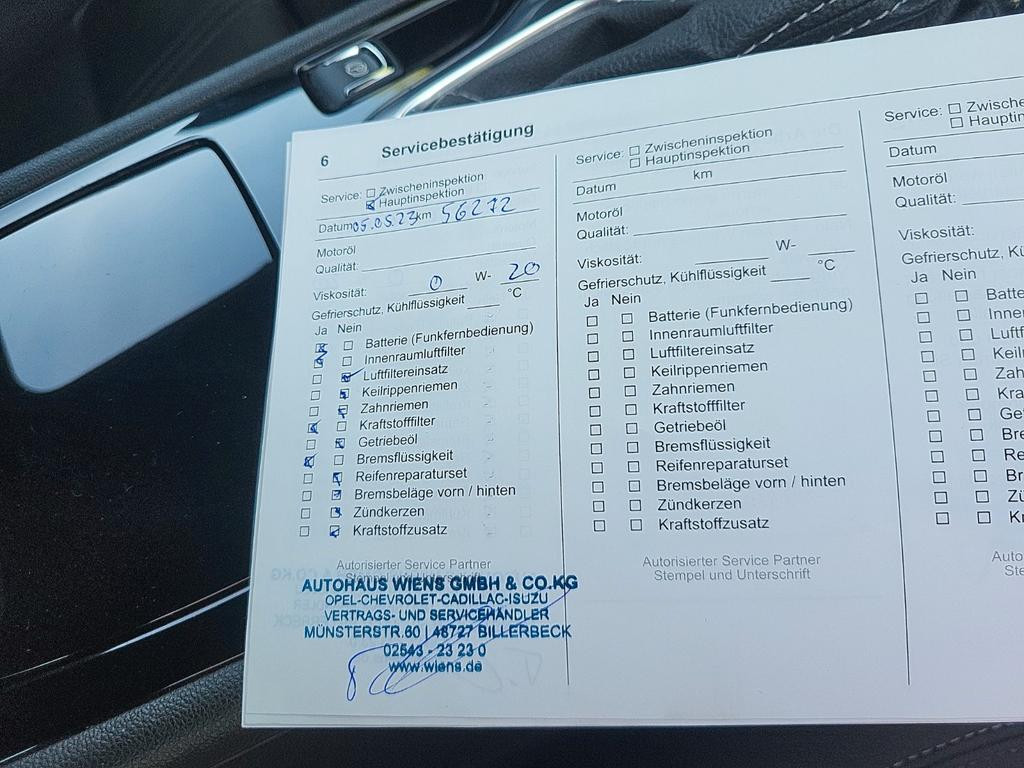 6 Servicebestätigung
Service: ☐ Zwischeninspektion
☒ Hauptinspektion
Datum 05.05.23 km 56272
Motoröl
Qualität:
Viskosität: 0 W- 20
Gefrierschutz, Kühlflüssigkeit °C
Ja Nein
☒ ☐ Batterie (Funkfernbedienung)
☒ ☐ Innenraumluftfilter
☐ ☒ Luftfiltereinsatz
☐ ☒ Keilrippenriemen
☐ ☒ Zahnriemen
☒ ☐ Kraftstofffilter
☐ ☒ Getriebeöl
☒ ☐ Bremsflüssigkeit
☐ ☒ Reifenreparaturset
☐ ☒ Bremsbeläge vorn / hinten
☐ ☒ Zündkerzen
☐ ☒ Kraftstoffzusatz
Autorisierter Service Partner
Stempel und Unterschrift
AUTOHAUS WIENS GMBH & CO.KG
OPEL-CHEVROLET-CADILLAC-ISUZU
VERTRAGS- UND SERVICEHÄNDLER
MÜNSTERSTR.60 | 48727 BILLERBECK
02543 - 23 23 0
www.wiens.de
Service: ☐ Zwischeninspektion
☐ Hauptinspektion
Datum km
Motoröl
Qualität:
Viskosität: W-
Gefrierschutz, Kühlflüssigkeit °C
Ja Nein
☐ ☐ Batterie (Funkfernbedienung)
☐ ☐ Innenraumluftfilter
☐ ☐ Luftfiltereinsatz
☐ ☐ Keilrippenriemen
☐ ☐ Zahnriemen
☐ ☐ Kraftstofffilter
☐ ☐ Getriebeöl
☐ ☐ Bremsflüssigkeit
☐ ☐ Reifenreparaturset
☐ ☐ Bremsbeläge vorn / hinten
☐ ☐ Zündkerzen
☐ ☐ Kraftstoffzusatz
Autorisierter Service Partner
Stempel und Unterschrift
Service: ☐ Zwische
☐ Hauptin
Datum
Motoröl
Qualität:
Viskosität:
Gefrierschutz, Kü
Ja Nein
☐ ☐ Batte
☐ ☐ Inne
☐ ☐ Luftf
☐ ☐ Keil
☐ ☐ Zah
☐ ☐ Kra
☐ ☐ Ge
☐ ☐ Bre
☐ ☐ Re
☐ ☐ Br
☐ ☐ Zü
☐ ☐ K
Auto
Ste